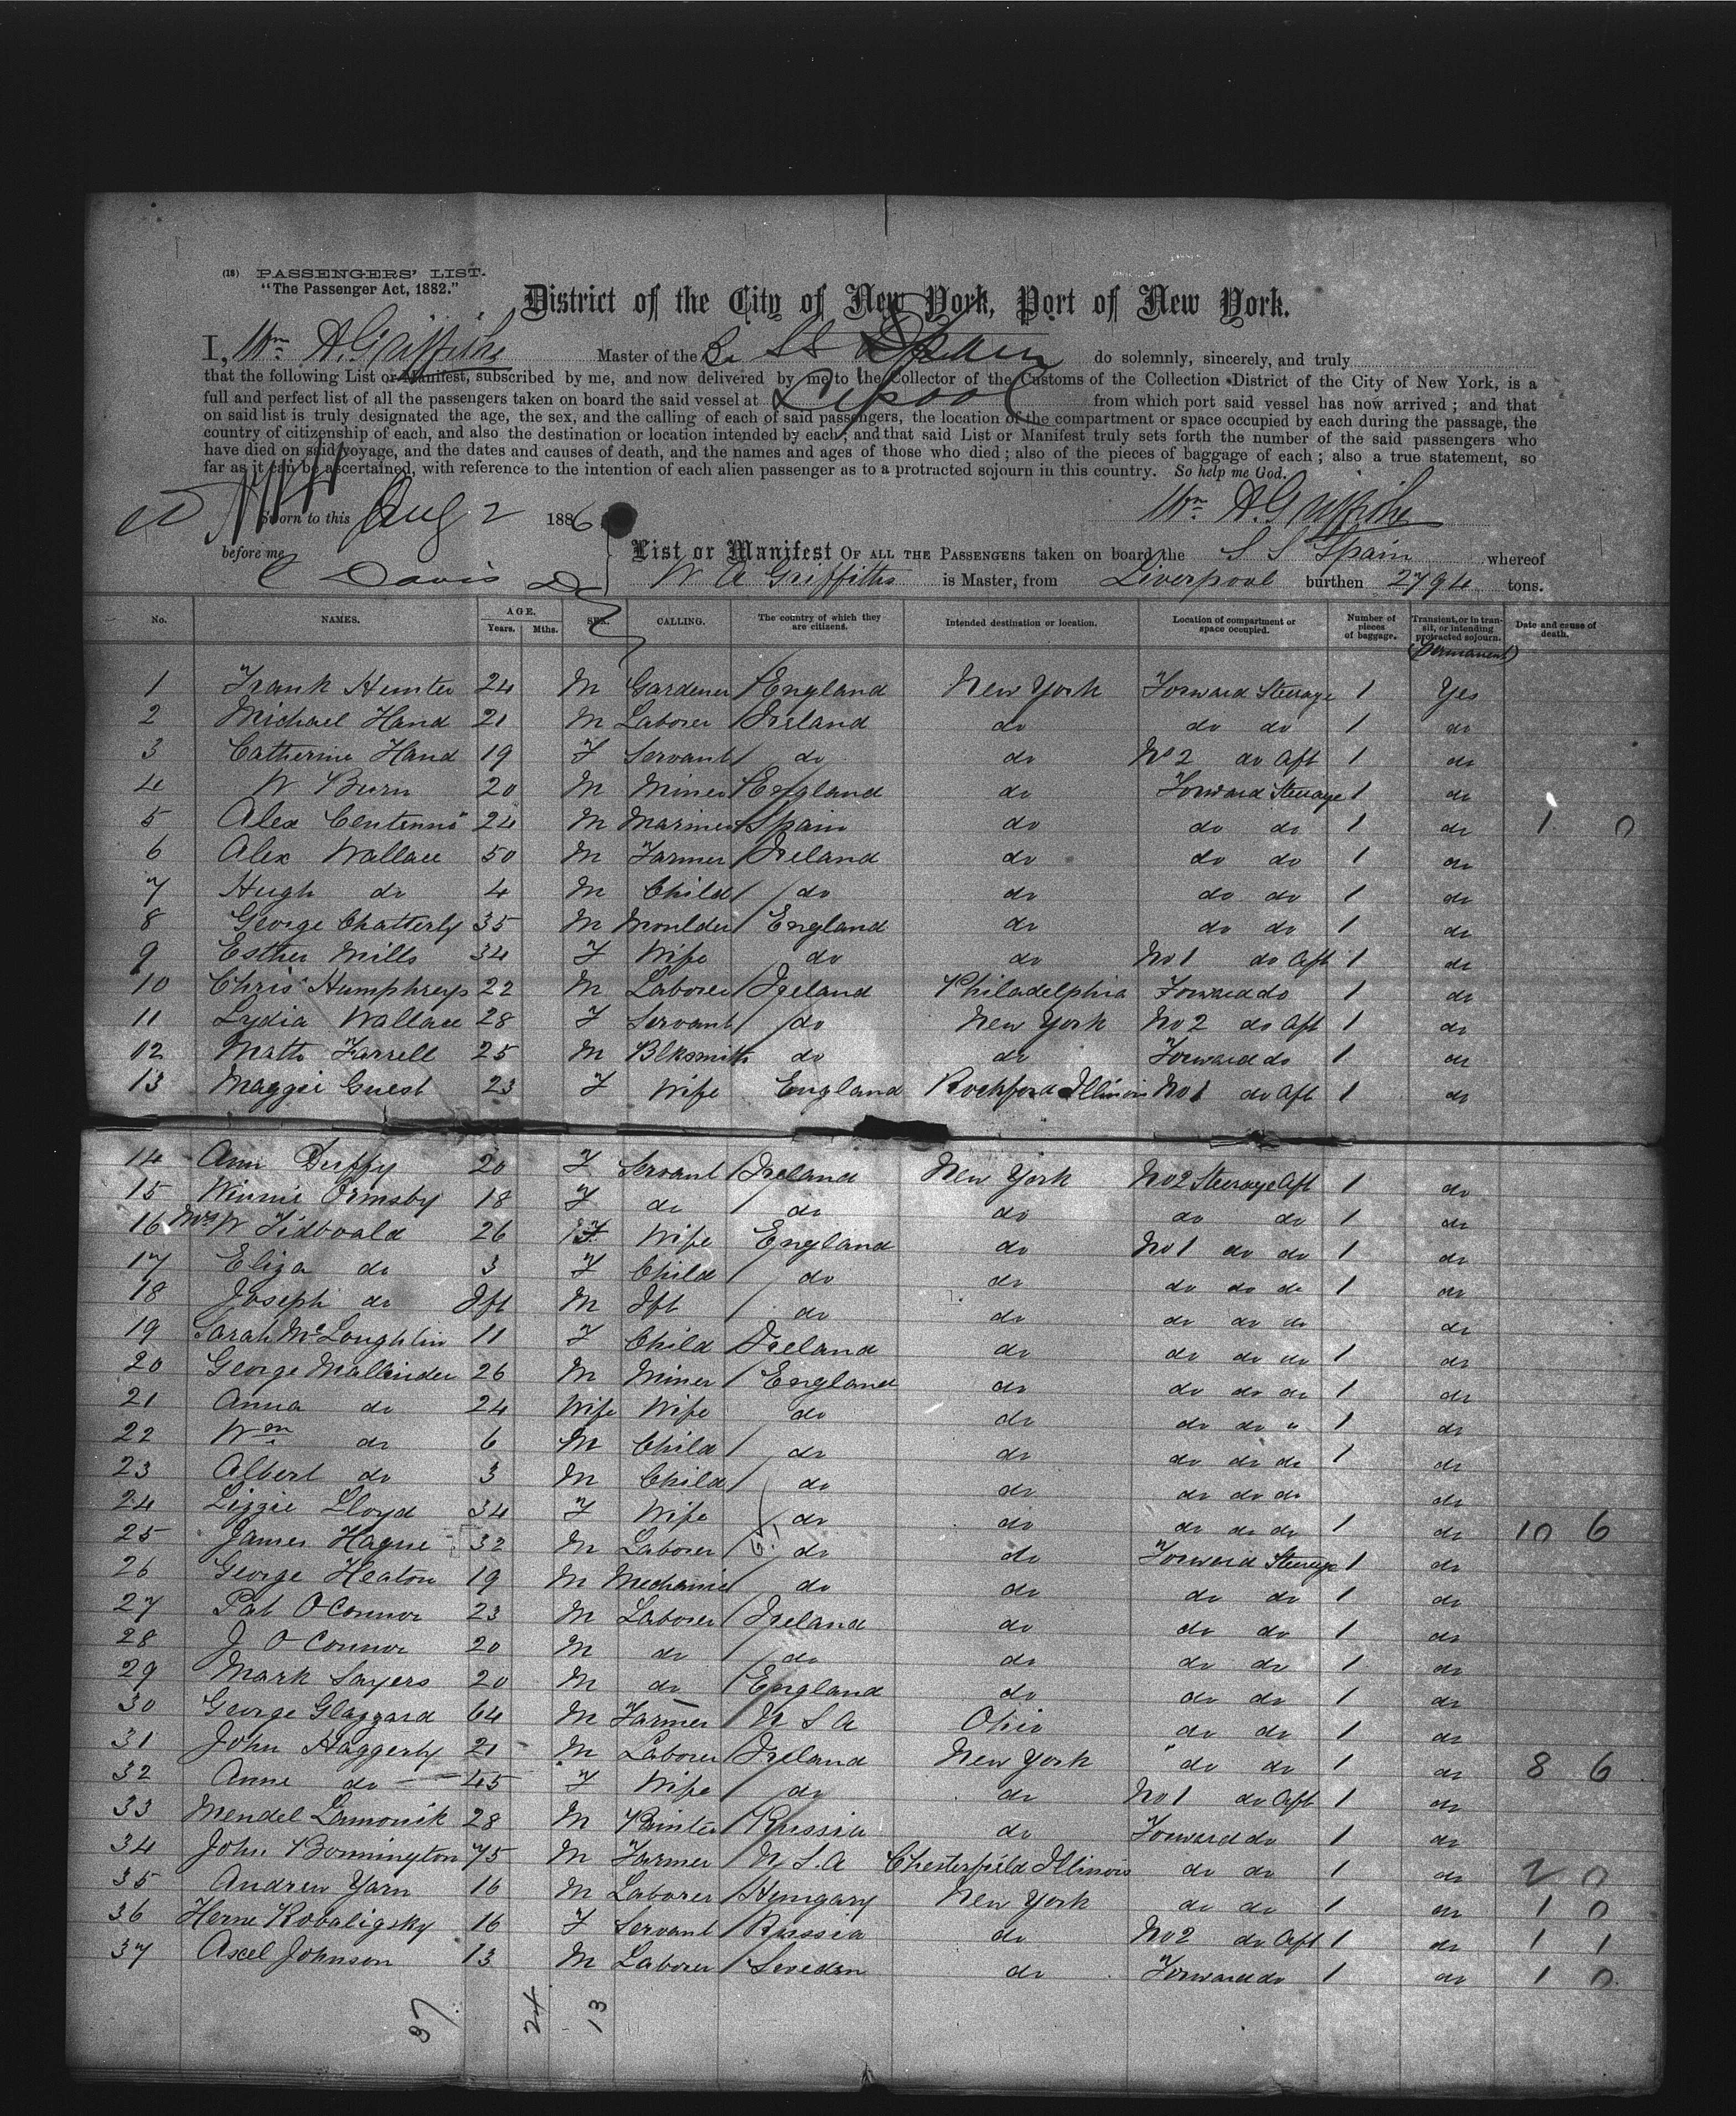 (18) PASSENGERS' LIST.
"The Passenger Act, 1882."
District of the City of New York, Port of New York.
I, Wm A. Griffiths Master of the Br SS Spain do solemnly, sincerely, and truly
that the following List or Manifest, subscribed by me, and now delivered by me to the Collector of the Customs of the Collection District of the City of New York, is a
full and perfect list of all the passengers taken on board the said vessel at L'pool from which port said vessel has now arrived; and that
on said list is truly designated the age, the sex, and the calling of each of said passengers, the location of the compartment or space occupied by each during the passage, the
country of citizenship of each, and also the destination or location intended by each; and that said List or Manifest truly sets forth the number of the said passengers who
have died on said voyage, and the dates and causes of death, and the names and ages of those who died; also of the pieces of baggage of each; also a true statement, so
far as it can be ascertained, with reference to the intention of each alien passenger as to a protracted sojourn in this country. So help me God.
Wm A. Griffiths
Sworn to this Aug 2 1886
before me
C Davis
List or Manifest OF ALL THE PASSENGERS taken on board the S S Spain whereof
W A Griffiths is Master, from Liverpool burthen 2794 tons.
No. NAMES. AGE. Years. Mths. SEX. CALLING. The country of which they are citizens. Intended destination or location. Location of compartment or space occupied. Number of pieces of baggage. Transient, or in transit, or intending protracted sojourn. Date and cause of death.
(Permanent)
1 Frank Hunter 24 M Gardener England New York Forward Steerage 1 Yes
2 Michael Hand 21 M Laborer Ireland do do do 1 do
3 Catherine Hand 19 F Servant do do No 2 do Aft 1 do
4 W Burn 20 M Miner England do Forward Steerage 1 do
5 Alex Centenno 24 M Mariner Spain do do do 1 do 1 0
6 Alex Wallace 50 M Farmer Ireland do do do 1 do
7 Hugh do 4 M Child do do do do 1 do
8 George Chatterly 35 M Moulder England do do do 1 do
9 Esther Mills 34 F Wife do do No 1 do Aft 1 do
10 Chris Humphreys 22 M Laborer Ireland Philadelphia Forward do 1 do
11 Lydia Wallace 28 F Servant do New York No 2 do Aft 1 do
12 Matth Farrell 25 M Blksmith do do Forward do 1 do
13 Maggie Guest 23 F Wife England Rockford Illinois No 1 do Aft 1 do
14 Ann Duffy 20 F Servant Ireland New York No 2 Steerage Aft 1 do
15 Winnie Ormsby 18 F do do do do do 1 do
16 Mrs W Tidboald 26 F Wife England do No 1 do do 1 do
17 Eliza do 3 F Child do do do do do 1 do
18 Joseph do Ift M Ift do do do do do do
19 Sarah McLoughlin 11 F Child Ireland do do do do 1 do
20 George Mallinder 26 M Miner England do do do do 1 do
21 Anna do 24 Wife Wife do do do do " 1 do
22 Wm do 6 M Child do do do do do 1 do
23 Albert do 3 M Child do do do do do do
24 Lizzie Lloyd 34 F Wife do do do do do 1 do 10 6
25 James Hague 32 M Laborer do do Forward Steerage 1 do
26 George Heaton 19 M Mechanic do do do do 1 do
27 Pat O'Connor 23 M Laborer Ireland do do do 1 do
28 J O'Connor 20 M do do do do do 1 do
29 Mark Sayers 20 M do England do do do 1 do
30 George Glazzard 64 M Farmer U S A Ohio do do 1 do
31 John Haggerty 21 M Laborer Ireland New York do do 1 do 8 6
32 Anne do 45 F Wife do do No 1 do Aft 1 do
33 Mendel Lamonik 28 M Painter Russia do Forward do 1 do
34 John Bonnington 75 M Farmer U.S.A Chesterfield Illinois do do 1 do 2 0
35 Andrew Yarn 16 M Laborer Hungary New York do do 1 do 1 0
36 Herne Kobaligsky 16 F Servant Russia do No 2 do Aft 1 do 1 1
37 Axel Johnson 13 M Laborer Sweden do Forward do 1 do 1 0
37 24 13